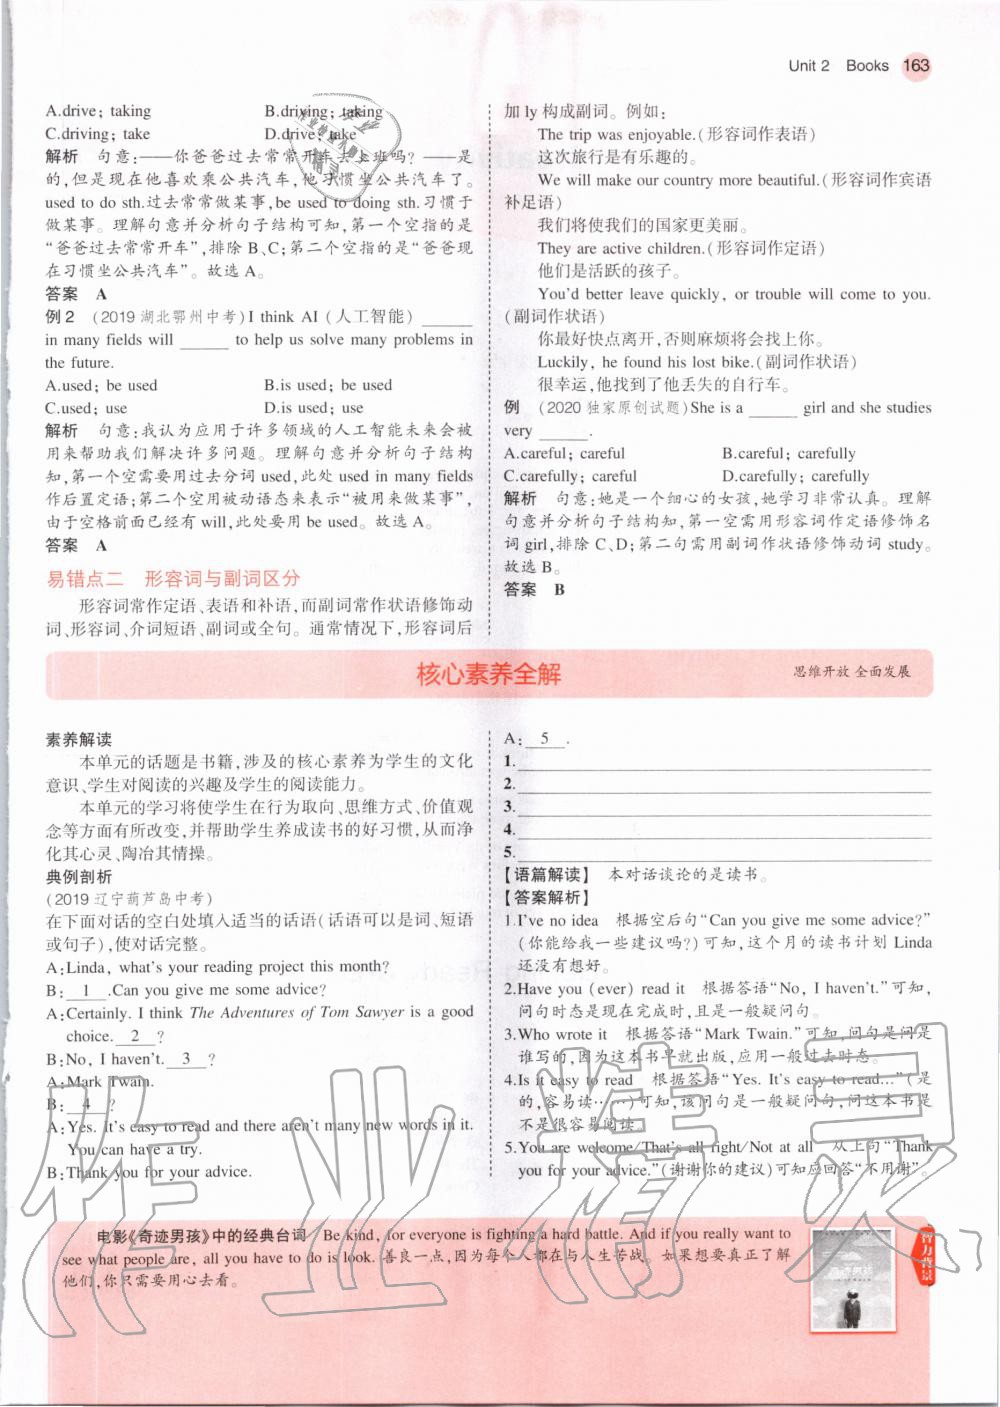 Unit 2 Books 163
A.drive; taking B.driving; taking
C.driving; take D.drive; take
解析 句意:——你爸爸过去常常开车去上班吗? ——是
的,但是现在他喜欢乘公共汽车,他习惯坐公共汽车了。
used to do sth.过去常常做某事,be used to doing sth.习惯于
做某事。理解句意并分析句子结构可知,第一个空指的是
“爸爸过去常常开车”,排除B、C;第二个空指的是“爸爸现
在习惯坐公共汽车”。故选A。
答案 A
例2 (2019湖北鄂州中考)I think AI(人工智能) ______
in many fields will ______ to help us solve many problems in
the future.
A.used; be used B.is used; be used
C.used; use D.is used; use
解析 句意:我认为应用于许多领域的人工智能未来会被
用来帮助我们解决许多问题。理解句意并分析句子结构
知,第一个空需要用过去分词used,此处used in many fields
作后置定语;第二个空用被动语态来表示“被用来做某事”,
由于空格前面已经有will,此处要用be used。故选A。
答案 A
易错点二 形容词与副词区分
形容词常作定语、表语和补语,而副词常作状语修饰动
词、形容词、介词短语、副词或全句。通常情况下,形容词后
加ly构成副词。例如:
The trip was enjoyable.(形容词作表语)
这次旅行是有乐趣的。
We will make our country more beautiful.(形容词作宾语
补足语)
我们将使我们的国家更美丽。
They are active children.(形容词作定语)
他们是活跃的孩子。
You'd better leave quickly, or trouble will come to you.
(副词作状语)
你最好快点离开,否则麻烦将会找上你。
Luckily, he found his lost bike.(副词作状语)
很幸运,他找到了他丢失的自行车。
例 (2020独家原创试题)She is a ______ girl and she studies
very ______.
A.careful; careful B.careful; carefully
C.carefully; careful D.carefully; carefully
解析 句意:她是一个细心的女孩,她学习非常认真。理解
句意并分析句子结构知,第一空需用形容词作定语修饰名
词girl,排除C、D;第二句需用副词作状语修饰动词study。
故选B。
答案 B
核心素养全解 思维开放 全面发展
素养解读
本单元的话题是书籍,涉及的核心素养为学生的文化
意识、学生对阅读的兴趣及学生的阅读能力。
本单元的学习将使学生在行为取向、思维方式、价值观
念等方面有所改变,并帮助学生养成读书的好习惯,从而净
化其心灵、陶冶其情操。
典例剖析
(2019辽宁葫芦岛中考)
在下面对话的空白处填入适当的话语(话语可以是词、短语
或句子),使对话完整。
A:Linda, what's your reading project this month?
B: 1 .Can you give me some advice?
A:Certainly. I think The Adventures of Tom Sawyer is a good
choice. 2 ?
B:No, I haven't. 3 ?
A:Mark Twain.
B: 4 ?
A:Yes. It's easy to read and there aren't many new words in it.
You can have a try.
B:Thank you for your advice.
A: 5 .
1.
2.
3.
4.
5.
【语篇解读】 本对话谈论的是读书。
【答案解析】
1.I've no idea 根据空后句“Can you give me some advice?”
(你能给我一些建议吗?)可知,这个月的读书计划Linda
还没有想好。
2.Have you (ever) read it 根据答语“No, I haven't.”可知,
问句时态是现在完成时,且是一般疑问句。
3.Who wrote it 根据答语“Mark Twain.”可知,问句是问是
谁写的,因为这本书早就出版,应用一般过去时态。
4.Is it easy to read 根据答语“Yes. It's easy to read...”(是
的,容易读……)可知,该问句是一般疑问句,问这本书是
不是很容易阅读。
5.You are welcome/That's all right/Not at all 从上句“Thank
you for your advice.”(谢谢你的建议)可知应回答“不用谢”。
电影《奇迹男孩》中的经典台词 Be kind, for everyone is fighting a hard battle. And if you really want to
see what people are, all you have to do is look. 善良一点,因为每个人都在与人生苦战。如果想要真正了解
他们,你只需要用心去看。
奇迹男孩
智力背景
作业精灵